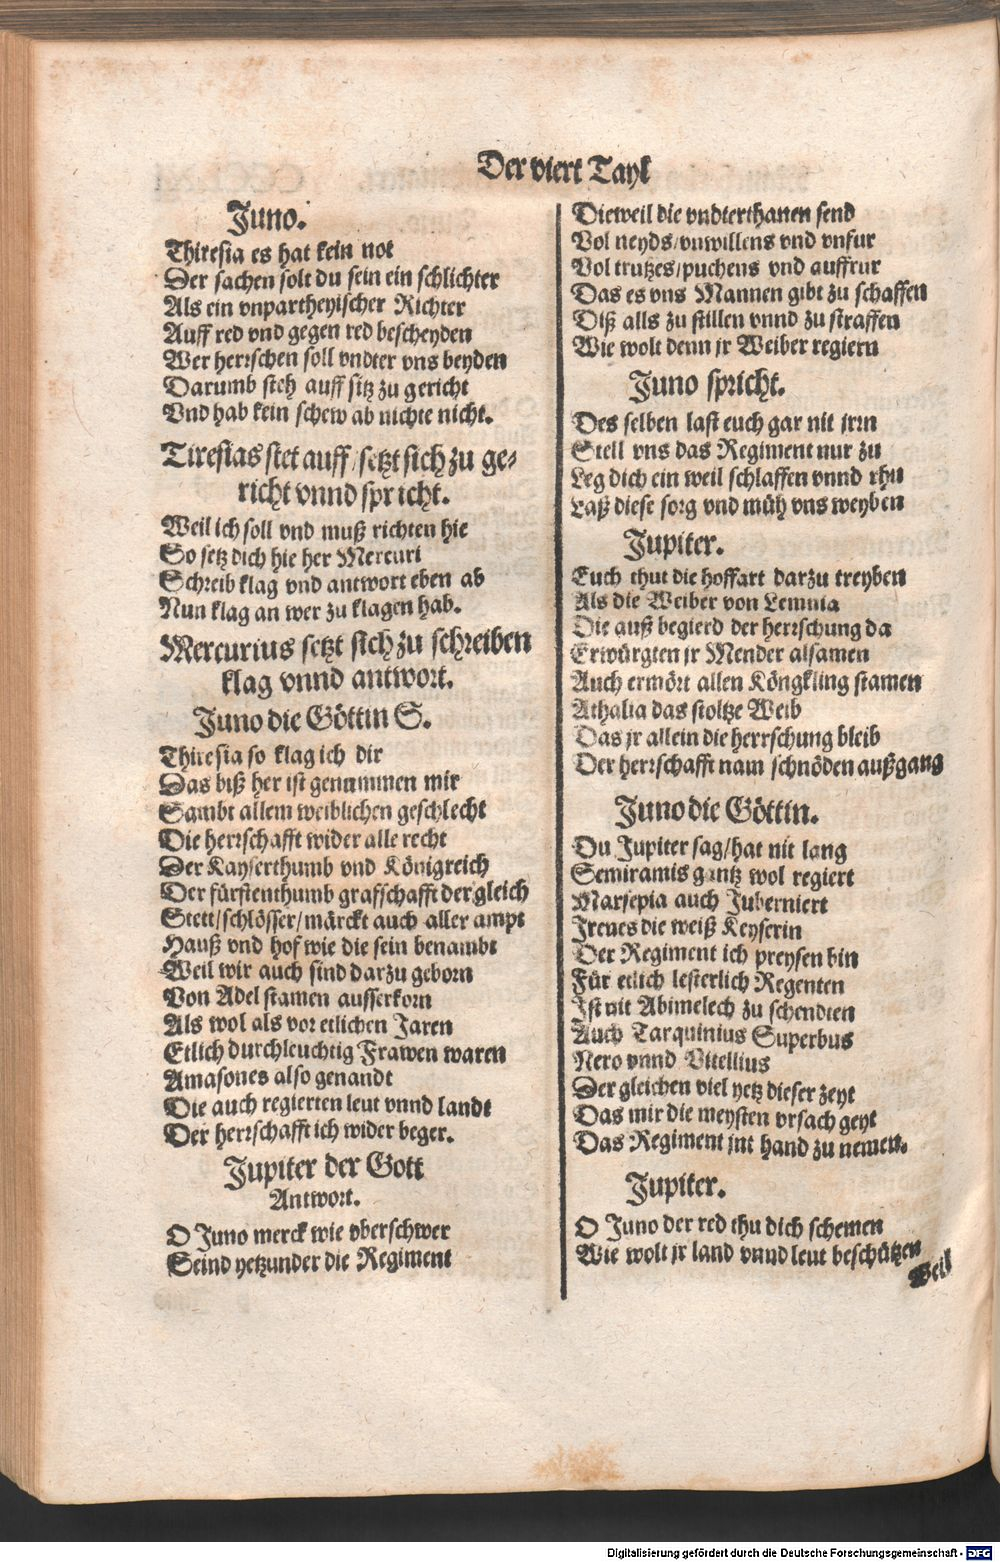 Der viert Tayl
Juno.
Thiresia es hat kein not
Der sachen solt du sein ein schlichter
Als ein vnpartheyischer Richter
Auff red vnd gegen red bescheyden
Wer herrschen soll vndter vns beyden
Darumb steh auff sitz zu gericht
Vnd hab kein schew ab nichte nicht.
Tiresias stet auff / setzt sich zu ge-
richt vnnd spricht.
Weil ich soll vnd muß richten hie
So setz dich hie her Mercuri
Schreib klag vnd antwort eben ab
Nun klag an wer zu klagen hab.
Mercurius setzt sich zu schreiben
klag vnnd antwort.
Juno die Göttin S.
Thiresia so klag ich dir
Das biß her ist genummen mir
Sambt allem weiblichen geschlecht
Die herrschafft wider alle recht
Der Kayserthumb vnd Königreich
Der fürstenthumb grafschafft der gleich
Stett / schlösser / märckt auch aller ampt
Hauß vnd hof wie die sein benambt
Weil wir auch sind darzu geborn
Von Adel stamen ausserkorn
Als wol als vor etlichen Jaren
Etlich durchleuchtig Frawen waren
Amasones also genandt
Die auch regierten leut vnnd landt
Der herrschafft ich wider beger.
Jupiter der Gott
Antwort.
O Juno merck wie vberschwer
Seind yetzunder die Regiment
Dieweil die vndterthanen send
Vol neyds / vnwillens vnd vnfur
Vol trutzes / puchens vnd auffrur
Das es vns Mannen gibt zu schaffen
Diß alls zu stillen vnnd zu straffen
Wie wolt denn jr Weiber regiern
Juno spricht.
Des selben last euch gar nit jrrn
Stell vns das Regiment nur zu
Leg dich ein weil schlaffen vnnd rhu
Laß diese sorg vnd müh vns weyben
Jupiter.
Euch thut die hoffart darzu treyben
Als die Weiber von Lemnia
Die auß begierd der herrschung da
Erwürgten jr Mender alsamen
Auch ermört allen Köngkling stamen
Athalia das stoltze Weib
Das jr allein die herrschung bleib
Der herrschafft nam schnöden außgang
Juno die Göttin.
Du Jupiter sag / hat nit lang
Semiramis gantz wol regiert
Marsepia auch Juberniert
Irenes die weiß Keyserin
Der Regiment ich preysen bin
Für etlich lesterlich Regenten
Ist nit Abimelech zu schendten
Auch Tarquinius Superbus
Nero vnnd Vitellius
Der gleichen viel yetz dieser zeyt
Das mir die meysten vrsach geyt
Das Regiment int hand zu nemen.
Jupiter.
O Juno der red thu dich schemen
Wie wolt jr land vnnd leut beschützen
Weil
Digitalisierung gefördert durch die Deutsche Forschungsgemeinschaft - DFG